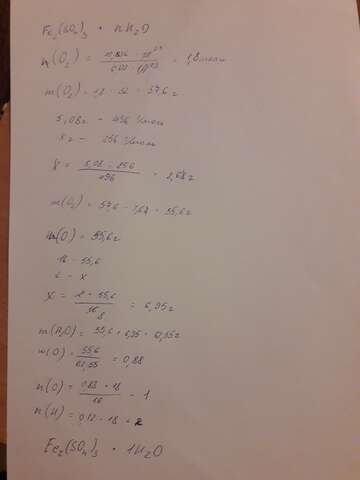 Fe₂(SO₄)₃ • nH₂O
n(O₂) = = 1,8 моль
m(O₂) = 1,8 · 32 = 57,6 г
5,08 г – 496 г/моль
x г – 256 г/моль
x = 5,08 · 256 / 496 = 2,62 г
m(O₂) = 57,6 – = 55,6 г
m(O) = 55,6 г
16 – 55,6
2 – x
x = 2 · 55,6 / 16 8 = 6,95 г
m(H₂O) = 55,6 + 6,95 = 62,55 г
w(O) = 55,6 / 62,55 = 0,88
n(O) = 0,88 · 18 / 16 = 1
n(H) = 0,12 · 18 = 2
Fe₂(SO₄)₃ • 1H₂O